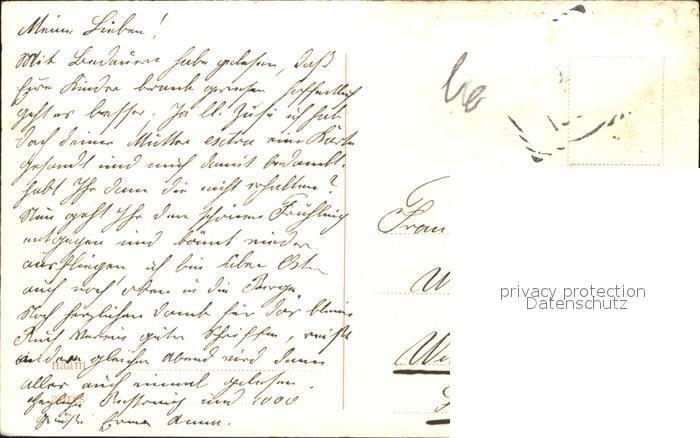 Meine Lieben!
Mit Bedauern habe gelesen, daß
Eure Kinder krank gewesen hoffentlich
geht es besser. Ja ll. Zusi ich hab
doch deiner Mutter extra eine Karte
gesandt und mich damit bedankt.
habt Ihr denn die nicht erhalten?
Nun geht Ihr dem schönen Frühling
entgegen und könnt wieder
ausfliegen ich bin über Ostern
auch noch oben in die Berge
Noch herzlichen Dank für das kleine
Buch
gleichen Abend wird dann
alles auch einmal gelesen.
und 1000
Grüße Anna.
naam
Frau
W
privacy protection
Datenschutz